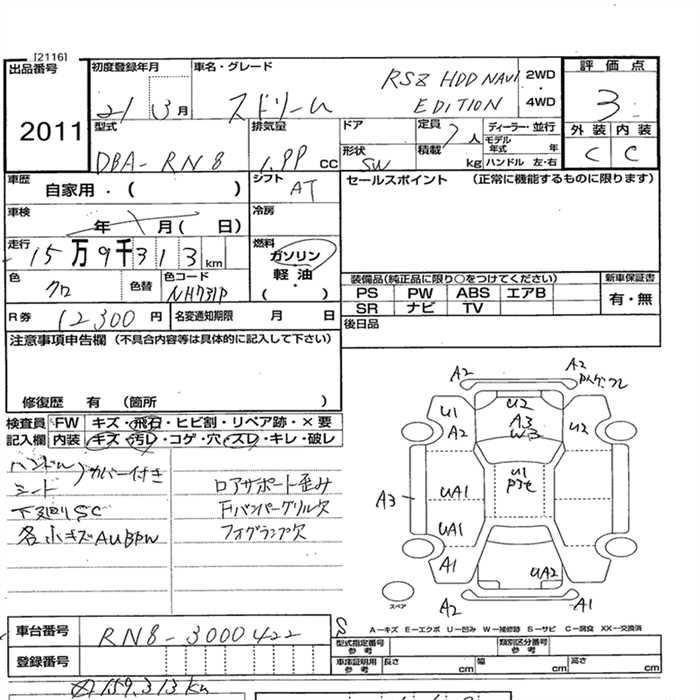 [2116]
出品番号 初度登録年月 車名・グレード RSZ HDD NAVI 2WD 評価点
2011 21 3月 ストリーム EDITION ・ 4WD 3
型式 排気量 ドア 定員 7人 ディーラー・並行 外装 内装
DBA-RN8 1.99 CC 形状 SW 積載 kg モデル年式 年 ハンドル 左・右 C C
車歴 自家用・( ) シフト AT セールスポイント (正常に機能するものに限ります)
車検 年 月( 日) 冷房
走行 15万9千313km 燃料 ガソリン・軽油・( )
色 クロ 色替 色コード NH731P 装備品(純正品に限り○をつけてください) 新車保証書
PS PW ABS エアB 有・無
SR ナビ TV
R券 12300円 名変通知期限 月 日 後日品
注意事項申告欄 (不具合内容等は具体的に記入して下さい)
修復歴 有 (箇所 )
検査員 FW キズ・飛石・ヒビ割・リペア跡・×要
記入欄 内装 キズ・汚レ・コゲ・穴・スレ・キレ・破レ
ハンドル カバー付き
シード
下廻りSC
各小キズAUBPW
ロアサポート歪み
Fバンパーグリル欠
フォグランプ欠
A2 A2
U1 U2 U2
A2 A3
W3
U1
A3 UA1
UA1
A1 UA2
A2 A1
スペア
S
A―キズ E―エクボ U―凹み W―補修跡 S―サビ C―腐食 XX―交換済
車台番号 RN8-3000422 型式指定番号 参考 類別区分番号 参考
登録番号 車庫証明用 参考 長さ cm 幅 cm 高さ cm
159,313km